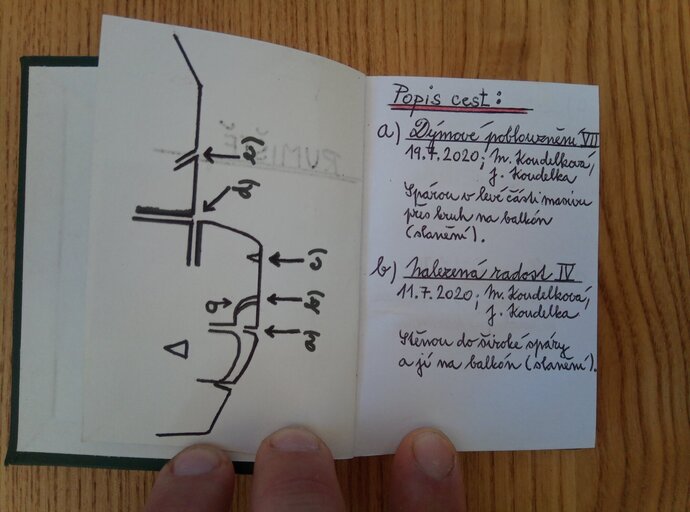 e)
d)
c)
b)
a)
RUMIŠTĚ
Popis cest:
a) Dýmové poblouznění VII
19.7.2020; M. Koudelková,
J. Koudelka
Spárou v levé části masivu
přes kruh na balkón
(slanění).
b) Nalezená radost IV
11.7.2020; M. Koudelková,
J. Koudelka
Stěnou do široké spáry
a jí na balkón (slanění).